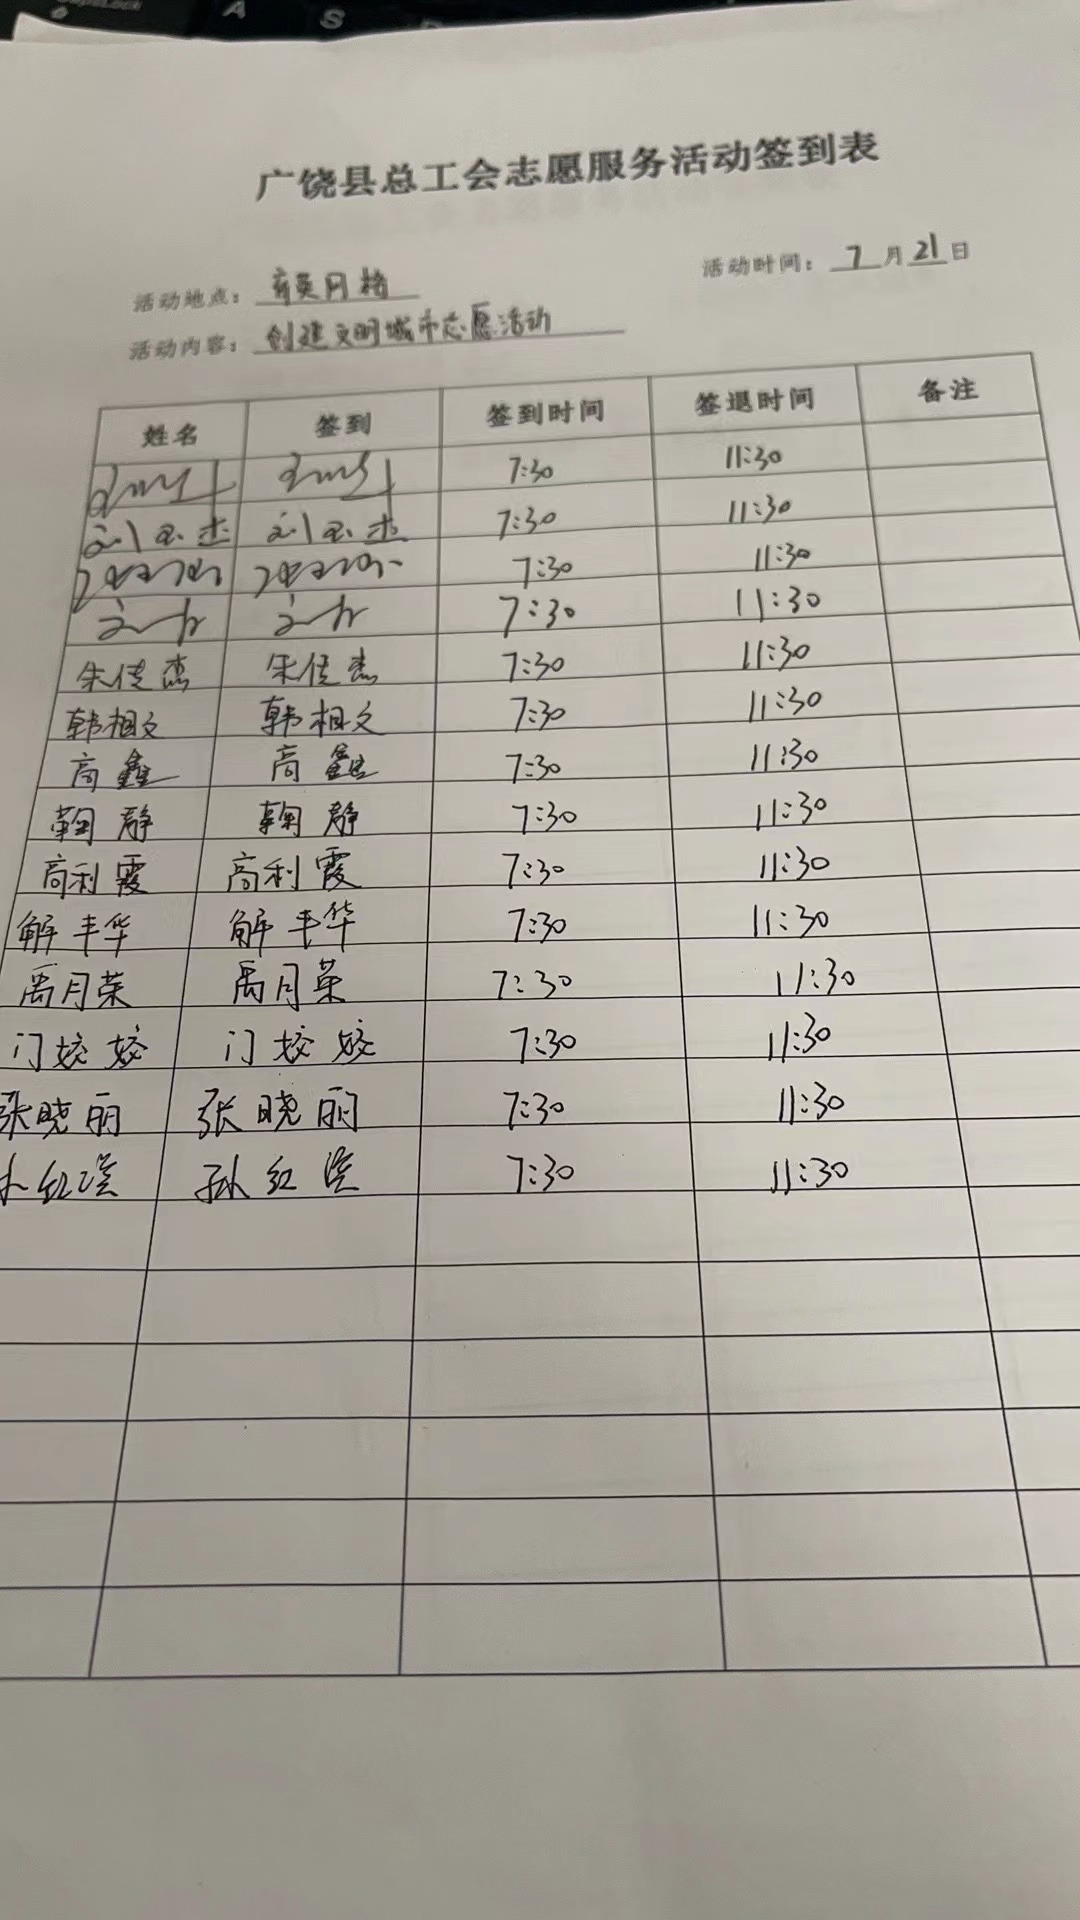 A S
广饶县总工会志愿服务活动签到表
活动地点：育英网格 活动时间：7月21日
活动内容：创建文明城市志愿活动
姓名 签到 签到时间 签退时间 备注
7:30 11:30
7:30 11:30
7:30 11:30
7:30 11:30
朱传杰 朱传杰 7:30 11:30
韩相文 韩相文 7:30 11:30
高鑫 高鑫 7:30 11:30
鞠静 鞠静 7:30 11:30
高利霞 高利霞 7:30 11:30
解丰华 解丰华 7:30 11:30
禹月荣 禹月荣 7:30 11:30
门姣姣 门姣姣 7:30 11:30
张晓丽 张晓丽 7:30 11:30
孙红 7:30 11:30